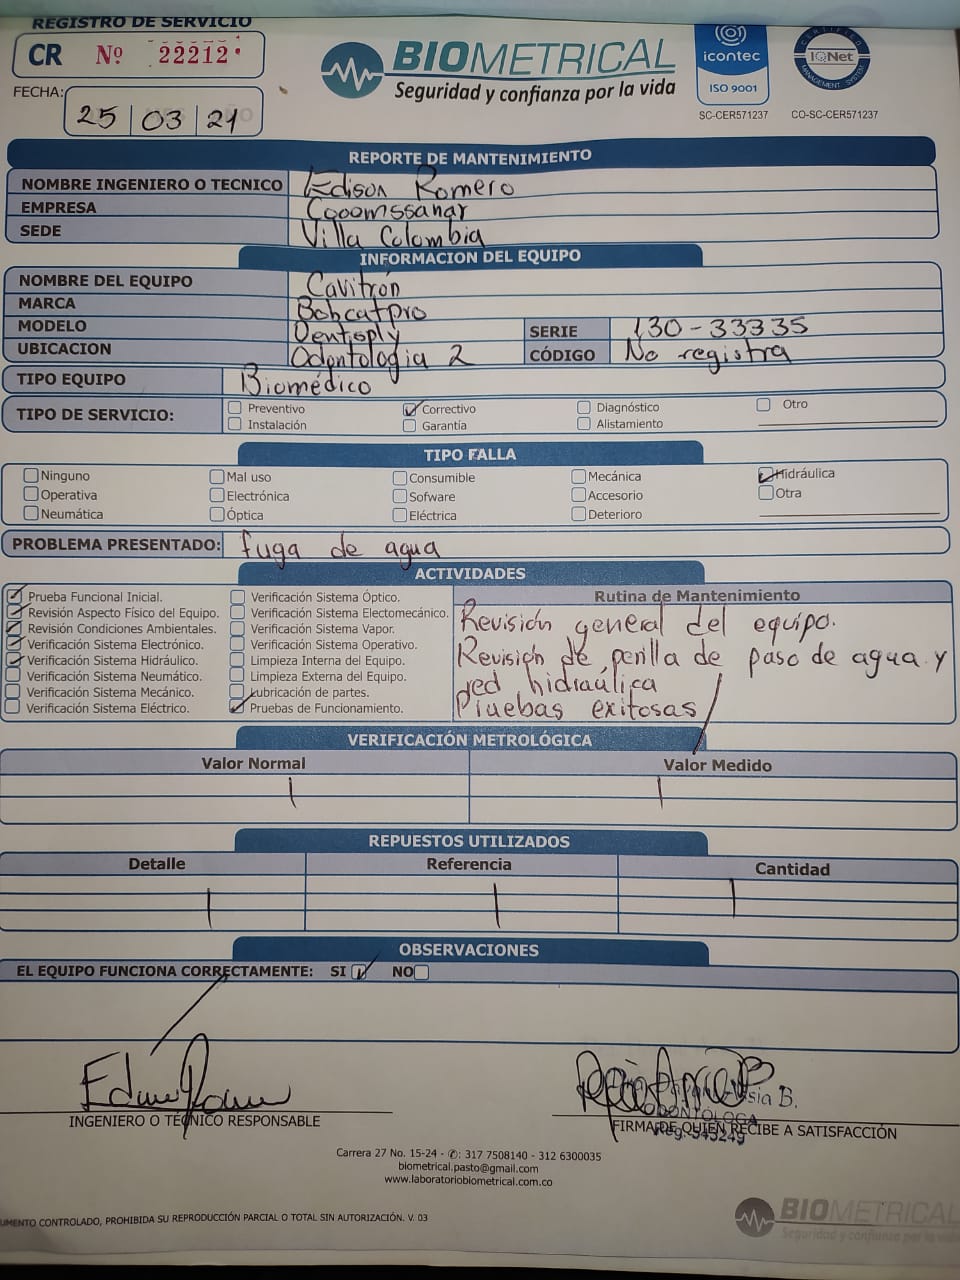 REGISTRO DE SERVICIO
CR Nº 22212
FECHA: 25 03 21
BIOMETRICAL
Seguridad y confianza por la vida
icontec
ISO 9001
SC-CER571237
CERTIFIED
IQNet
MANAGEMENT SYSTEM
CO-SC-CER571237
REPORTE DE MANTENIMIENTO
NOMBRE INGENIERO O TECNICO Edison Romero
EMPRESA Cooomssanar
SEDE Villa Colombia
INFORMACION DEL EQUIPO
NOMBRE DEL EQUIPO Cavitrón
MARCA Bobcatpro
MODELO Dentsply SERIE 130-33335
UBICACION Odontologia 2 CÓDIGO No registra
TIPO EQUIPO Biomédico
TIPO DE SERVICIO: Preventivo Correctivo Diagnóstico Otro
Instalación Garantía Alistamiento
TIPO FALLA
Ninguno Mal uso Consumible Mecánica Hidráulica
Operativa Electrónica Sofware Accesorio Otra
Neumática Óptica Eléctrica Deterioro
PROBLEMA PRESENTADO: fuga de agua
ACTIVIDADES
Prueba Funcional Inicial.
Revisión Aspecto Físico del Equipo.
Revisión Condiciones Ambientales.
Verificación Sistema Electrónico.
Verificación Sistema Hidráulico.
Verificación Sistema Neumático.
Verificación Sistema Mecánico.
Verificación Sistema Eléctrico.
Verificación Sistema Óptico.
Verificación Sistema Electomecánico.
Verificación Sistema Vapor.
Verificación Sistema Operativo.
Limpieza Interna del Equipo.
Limpieza Externa del Equipo.
Lubricación de partes.
Pruebas de Funcionamiento.
Rutina de Mantenimiento
Revisión general del equipo.
Revisión de perilla de paso de agua y
red hidraúlica
Pruebas exitosas
VERIFICACIÓN METROLÓGICA
Valor Normal Valor Medido
REPUESTOS UTILIZADOS
Detalle Referencia Cantidad
OBSERVACIONES
EL EQUIPO FUNCIONA CORRECTAMENTE: SI NO
INGENIERO O TÉCNICO RESPONSABLE
B.
ODONTÓLOGA
Reg.
FIRMA DE QUIEN RECIBE A SATISFACCIÓN
Carrera 27 No. 15-24 - ✆: 317 7508140 - 312 6300035
biometrical.pasto@gmail.com
www.laboratoriobiometrical.com.co
UMENTO CONTROLADO, PROHIBIDA SU REPRODUCCIÓN PARCIAL O TOTAL SIN AUTORIZACIÓN. V. 03
BIOMETRICAL
Seguridad y confianza por la vida